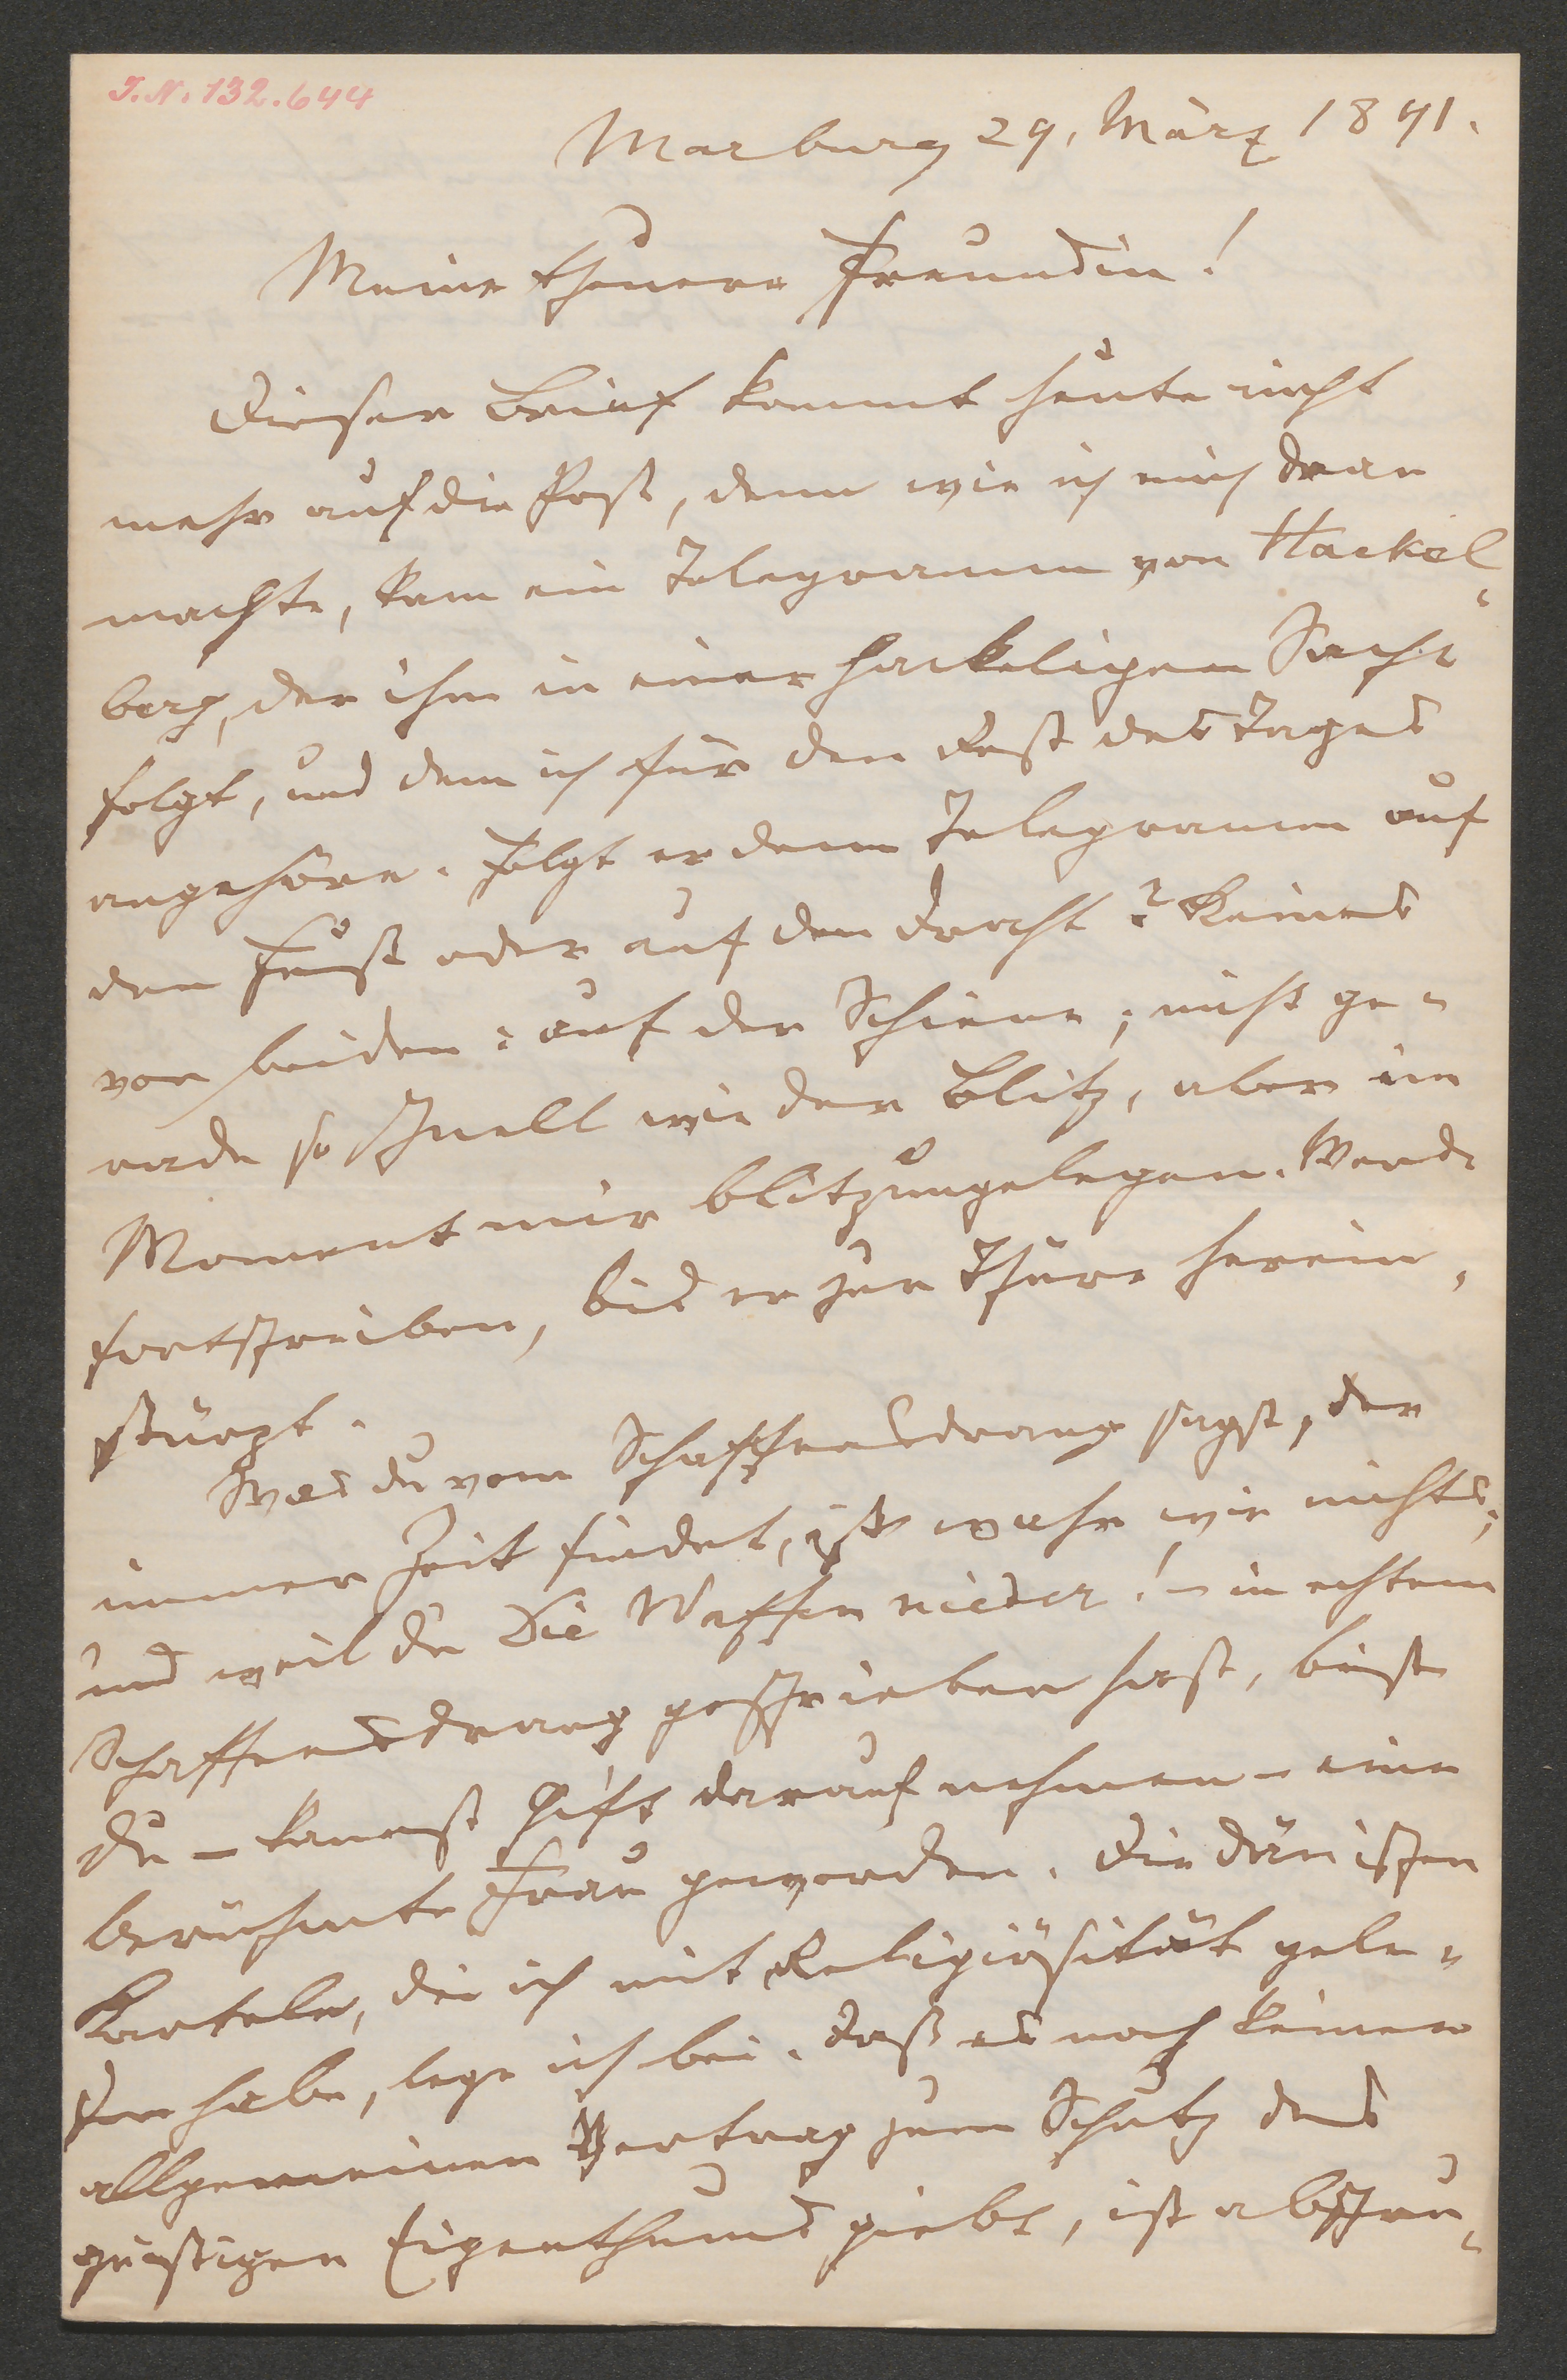 I.N. 132.644
Marburg 29. März 1891.
Meine theuere Freundin!
Dieser Brief kommt heute nicht
mehr auf die Post, denn wie ich mich dran
machte, kam ein Telegramm von Hackel-
berg, der ihm in einer hackeligen Sache
folgt, und dem ich für den Rest des Tages
angehöre. Folgt er dem Telegramm auf
dem Fuß oder auf dem Draht? Keines
von beiden: auf der Schiene; nicht ge-
rade so schnell wie der Blitz, aber im
Moment mir blitzungelegen. Werde
fortschreiben, bis er zur Thüre herein-
stürzt.
Was du vom Schaffensdrang sagst, der
immer Zeit findet, ist wahr wie nichts;
und weil du Die Waffen nieder! – in echtem
Schaffensdrang geschrieben hast, bist
du – kannst Gift darauf nehmen – eine
berühmte Frau geworden. Die dänischen
, die ich mit Religiösität gele-
sen habe, lege ich bei. Daß es noch keinen
allgemeinen Vertrag zum Schutz des
geistigen Eigenthums giebt, ist abscheu-